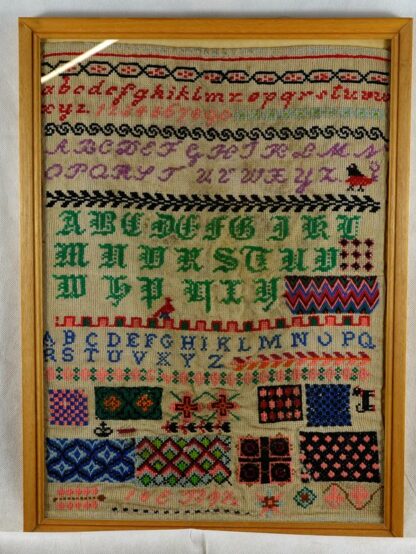 abcdefghiklmnopqrstuvw
xyz 1234567890
ABCDEFGHIKLMN
OPQRSTUVWXYZ
ABCDEFGIKL
MNURSTUV
ABCDEFGHIKLMNOPQ
RSTUVXYZ